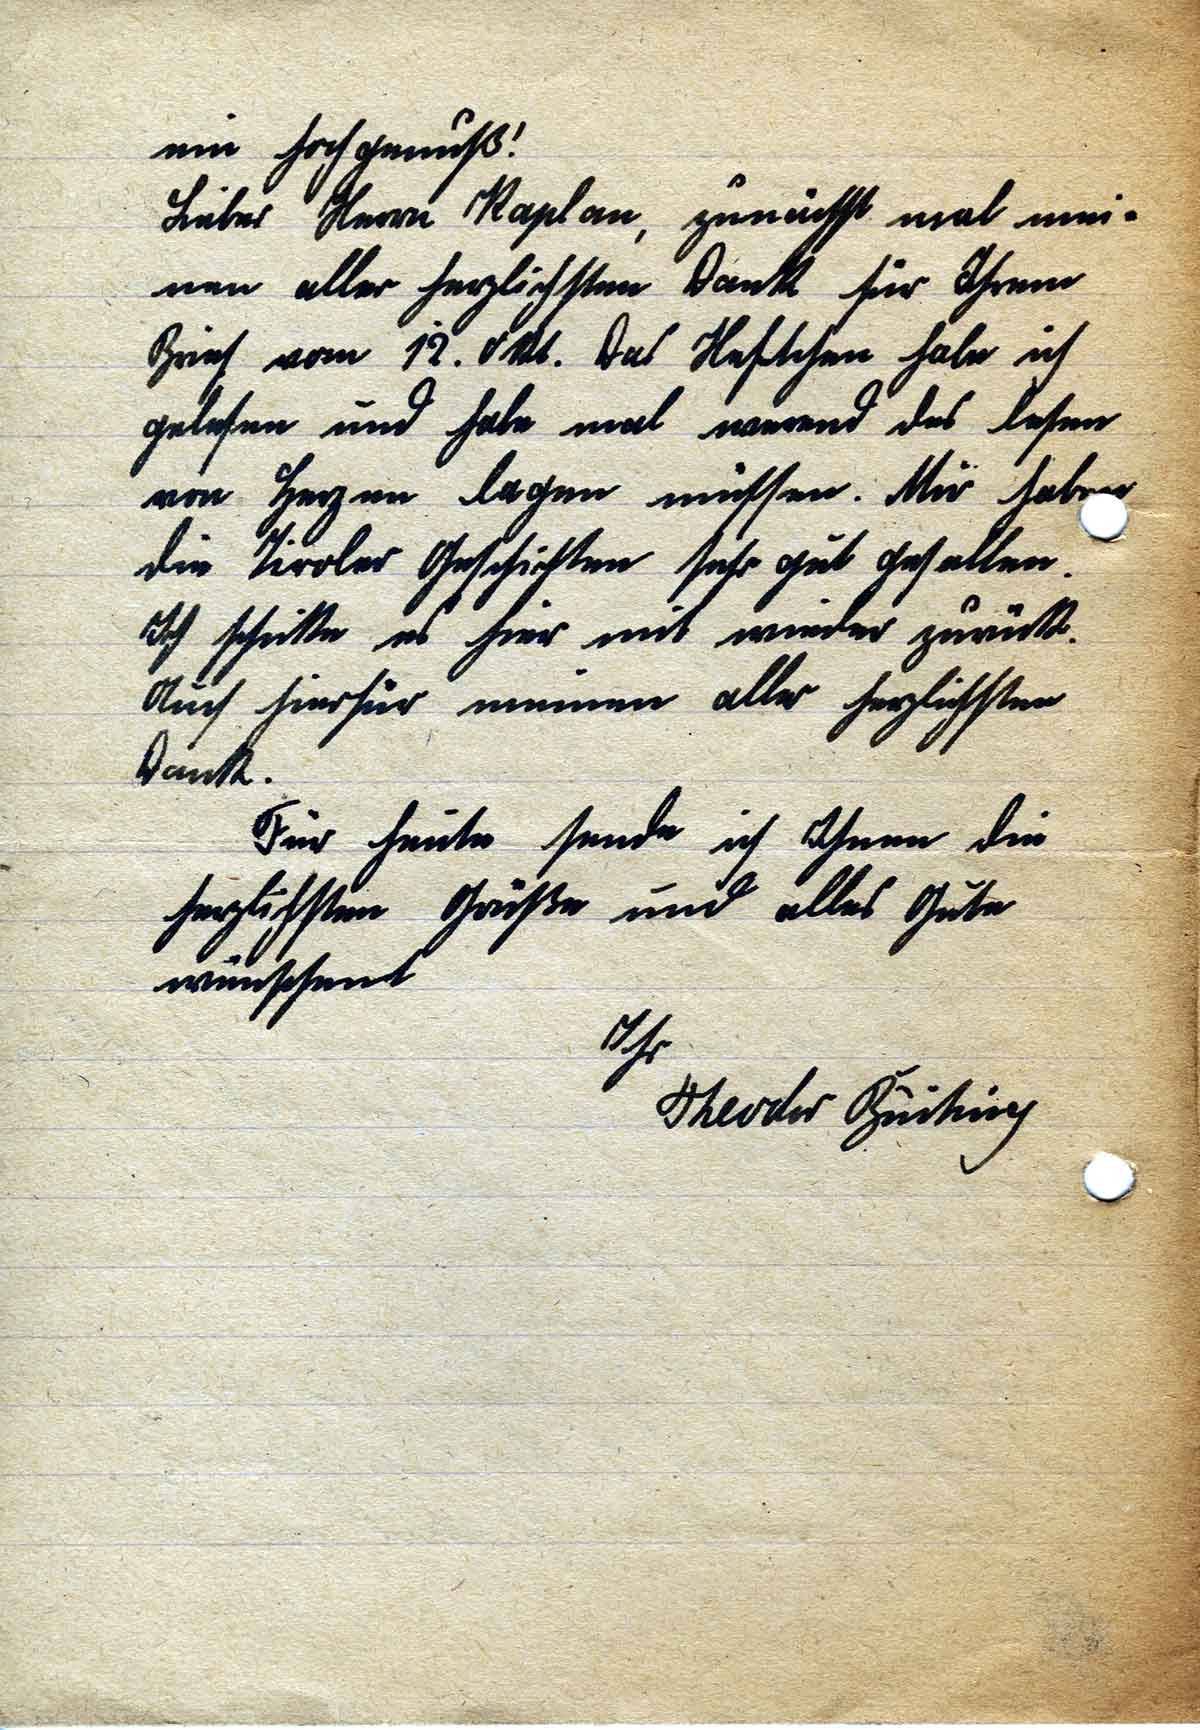 ein hochgenuß!
Lieber Herrn Kaplan, zunächst mal mei-
nen aller herzlichsten Dank für Ihren
Brief vom 12. Okt. Das Heftchen habe ich
gelesen und habe mal werend des lesen
von Herzen lagen müssen. Mir haben
die Tiroler Geschichten sehr gut gefallen.
Ich schikke es hier mit wieder zurück.
Auch hierfür meinen aller herzlichsten
Dank.
Für heute sende ich Ihnen die
herzlichsten Grüße und alles Gute
wünschent
Ihr
Theodor